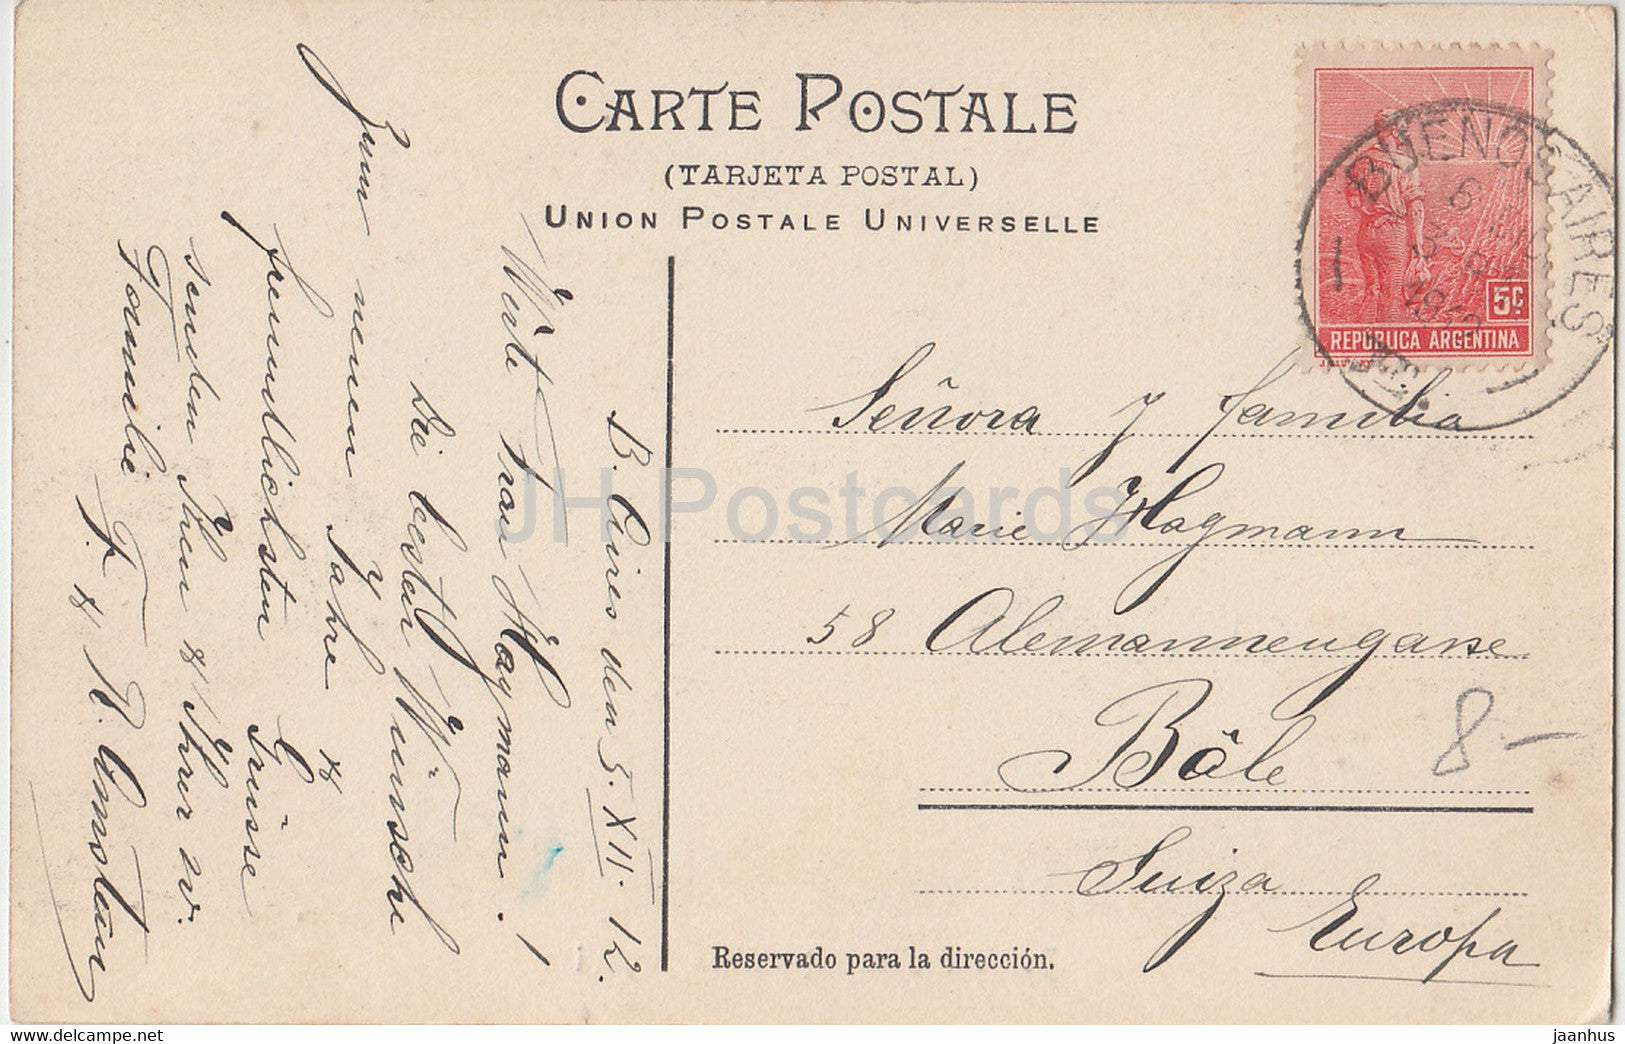 CARTE POSTALE
(TARJETA POSTAL)
UNION POSTALE UNIVERSELLE
BUENOS AIRES
6
1912
1
5c
REPÚBLICA ARGENTINA
B. Aires den 5. XII. 12.
Werte Frau Hagmann. !
Die besten Wünsche
zum neuen Jahre &
freundlichsten Grüsse
senden Ihnen & Ihrer w.
Familie F. & R.
Señora y familia
Marie Hagmann
58 Alemannengasse
Bâle
Suiza
Europa
8 –
Reservado para la dirección.
JH Postcards
delcampe.net
jaanhus